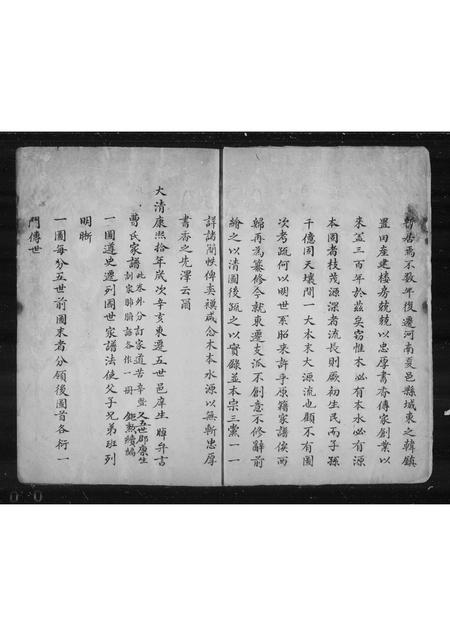 暫居焉不数年復遷河南夏邑縣城東之韓鎮
置田産建樓房兢兢以忠厚書香傳家創業以
来盖三百年於兹矣窃惟木必有本水必有源
本固者枝茂源深者流長則厥初生民而子孫
千億周天壤間一大本末大源流也顧不有圖
次考疏何以明世系昭来許乎原籍家譜俟西
歸再為纂修今就東遷支派不創意不修辭前
繪之以清圖後疏之以實錄並本宗三黨一一
詳諸簡帙俾奕禩咸念木本水源以無斬忠厚
書香之先澤云爾
大清康熙拾年歲次辛亥東遷五世邑庠生 暐弁言
曹氏家譜 此卷外分訂家道苦辛塋 制家肺腑語各作一册 又五世郡庠生 鉅勲續編
一圖遵史遷列圖世家譜法使父子兄弟班列
明晰
一圖每分五世前圖末者分領後圖首各衍一
門傳世